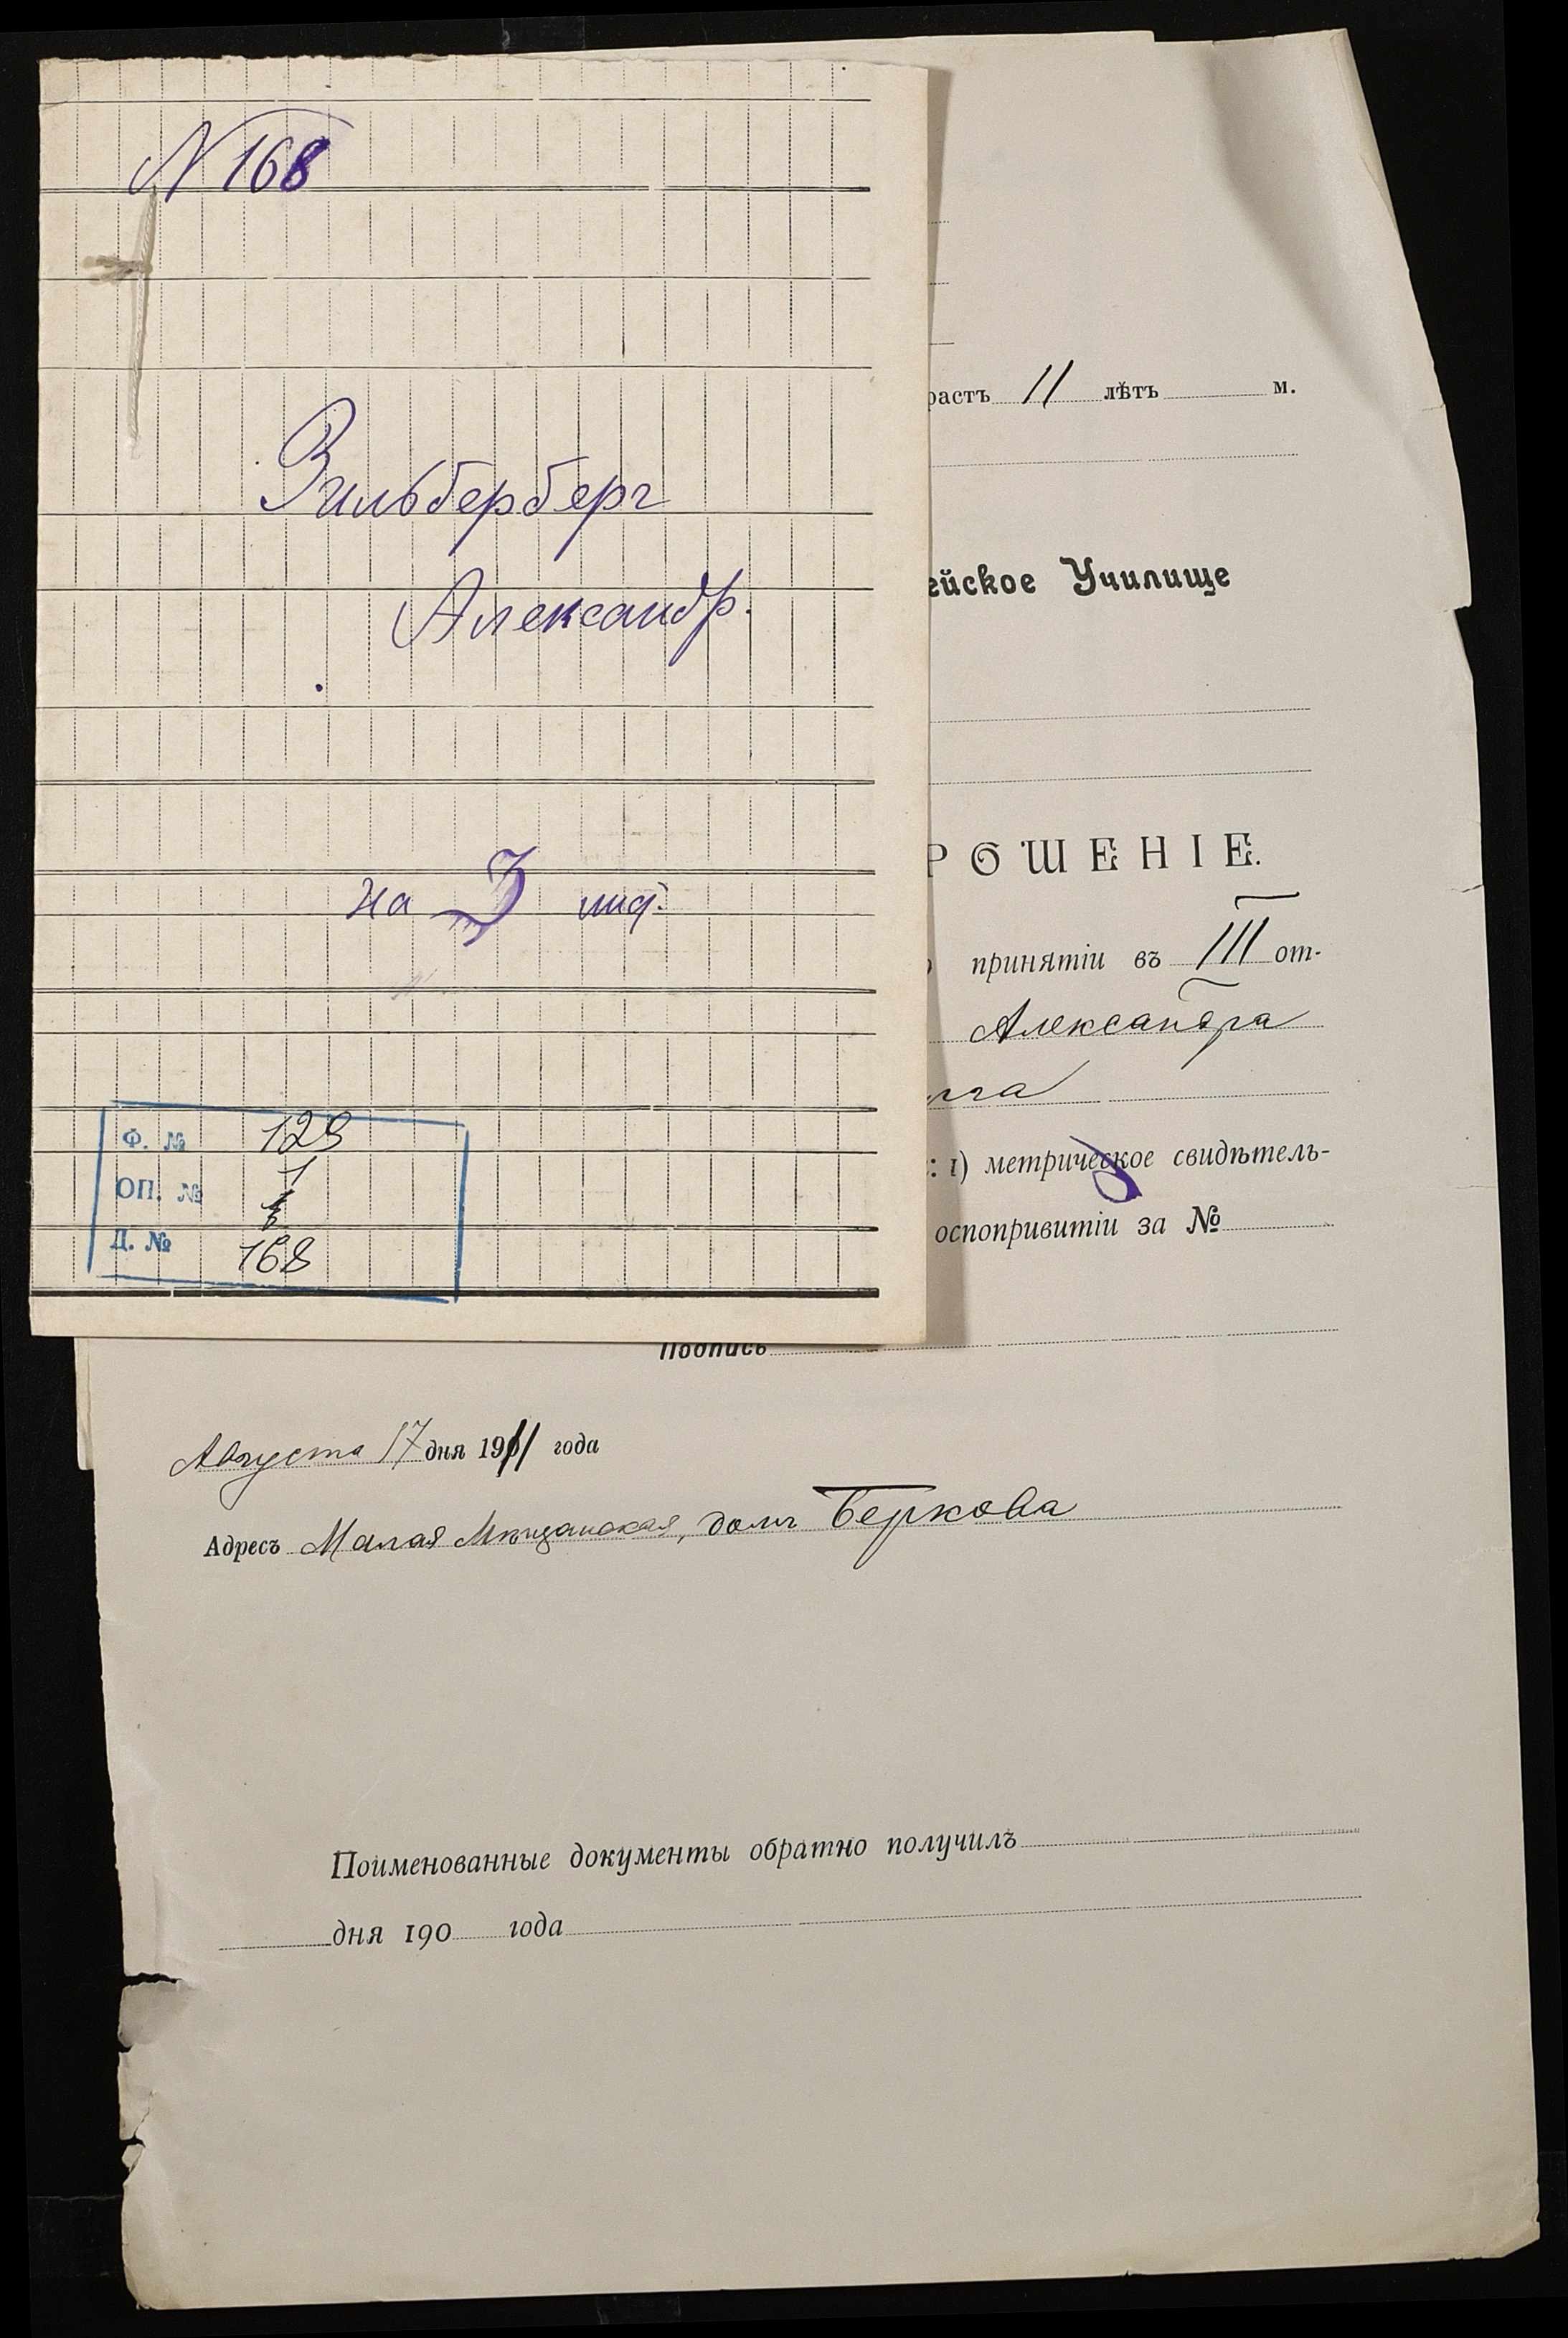 N 168
Зильберберг
Александр.
на 3 лис.
Ф. № 129
ОП. № 1
Д. № 168
растъ 11 лѣтъ м.
ейское Училище
РОШЕНІЕ.
принятіи въ III от-
Александра
рга
: 1) метрическое свидѣтель-
3
оспопривитіи за №
Подпись
Августа 17 дня 1911 года
Адресъ Малая Мѣщанская, домъ Беркова
Поименованные документы обратно получилъ
дня 190 года